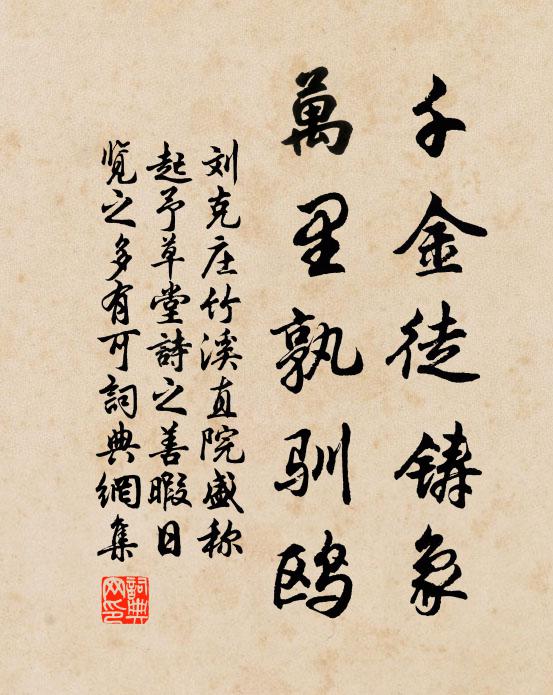 千金徒鑄象
萬里孰馴鸥
刘克庄竹溪直院盛称
起予草堂詩之善暇日
览之多有可詞典網集
詞典网印